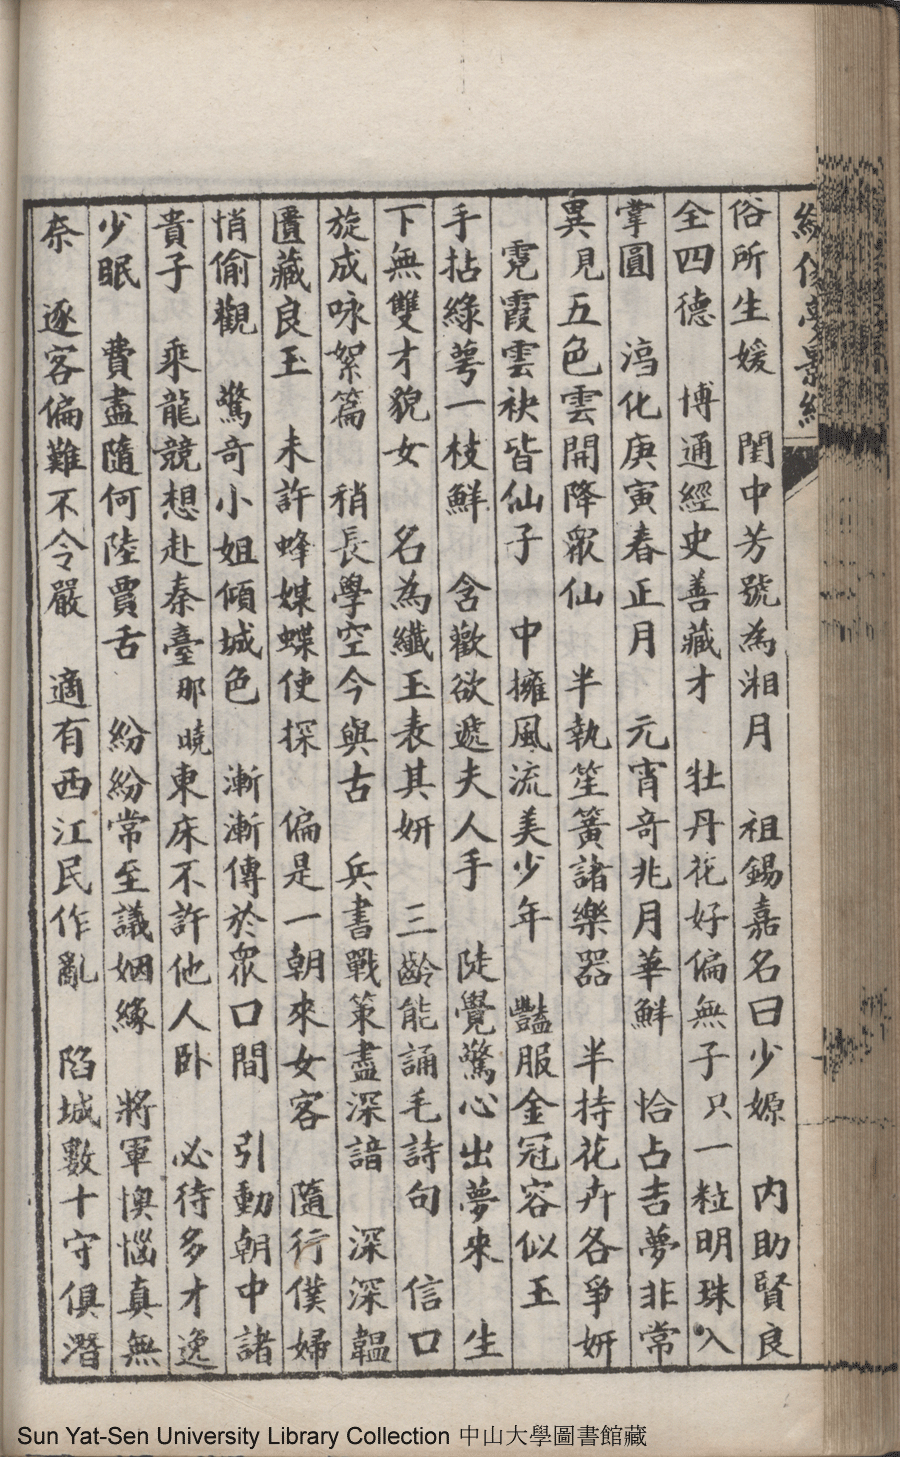 俗所生媛　閨中芳號為湘月　祖錫嘉名曰少嫄　內助賢良
全四德　博通經史善藏才　牡丹花好偏無子只一粒明珠入
掌圓　淳化庚寅春正月　元宵奇兆月華鮮　恰占吉夢非常
異見五色雲開降眾仙　半執笙簧諸樂器　半持花卉各爭妍
霓霞雲袂皆仙子　中擁風流美少年　豔服金冠容似玉
手拈綠萼一枝鮮　含歡欲遞夫人手　陡覺驚心出夢來　生
下無雙才貌女　名為纖玉表其妍　三齡能誦毛詩句　信口
旋成咏絮篇　稍長學空今與古　兵書戰策盡深諳　深深韞
匱藏良玉　未許蜂媒蝶使探　偏是一朝來女客　隨行僕婦
悄偷觀　驚奇小姐傾城色　漸漸傳於眾口間　引動朝中諸
貴子　乘龍競想赴秦臺那曉東床不許他人卧　必待多才逸
少眠　費盡隨何陸賈舌　紛紛常至議姻緣　將軍懊惱真無
奈　逐客偏難不令嚴　適有西江民作亂　陷城數十守俱潛
Sun Yat-Sen University Library Collection 中山大學圖書館藏